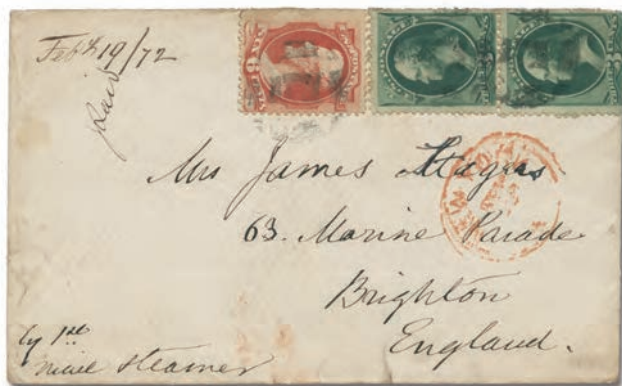 Feb 19/72
Paid
Mrs James
63. Marine Parade
Brighton
England.
by 1st
steamer